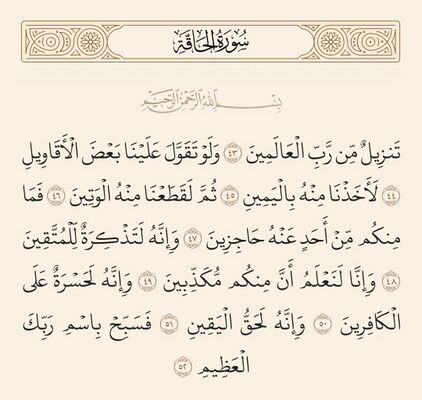 سُورَةُ الْحَاقَّةِ
بِسْمِ اللَّهِ الرَّحْمَٰنِ الرَّحِيمِ
تَنزِيلٌ مِّن رَّبِّ الْعَالَمِينَ ٤٣ وَلَوْ تَقَوَّلَ عَلَيْنَا بَعْضَ الْأَقَاوِيلِ
٤٤ لَأَخَذْنَا مِنْهُ بِالْيَمِينِ ٤٥ ثُمَّ لَقَطَعْنَا مِنْهُ الْوَتِينَ ٤٦ فَمَا
مِنكُم مِّنْ أَحَدٍ عَنْهُ حَاجِزِينَ ٤٧ وَإِنَّهُ لَتَذْكِرَةٌ لِّلْمُتَّقِينَ
٤٨ وَإِنَّا لَنَعْلَمُ أَنَّ مِنكُم مُّكَذِّبِينَ ٤٩ وَإِنَّهُ لَحَسْرَةٌ عَلَى
الْكَافِرِينَ ٥٠ وَإِنَّهُ لَحَقُّ الْيَقِينِ ٥١ فَسَبِّحْ بِاسْمِ رَبِّكَ
الْعَظِيمِ ٥٢